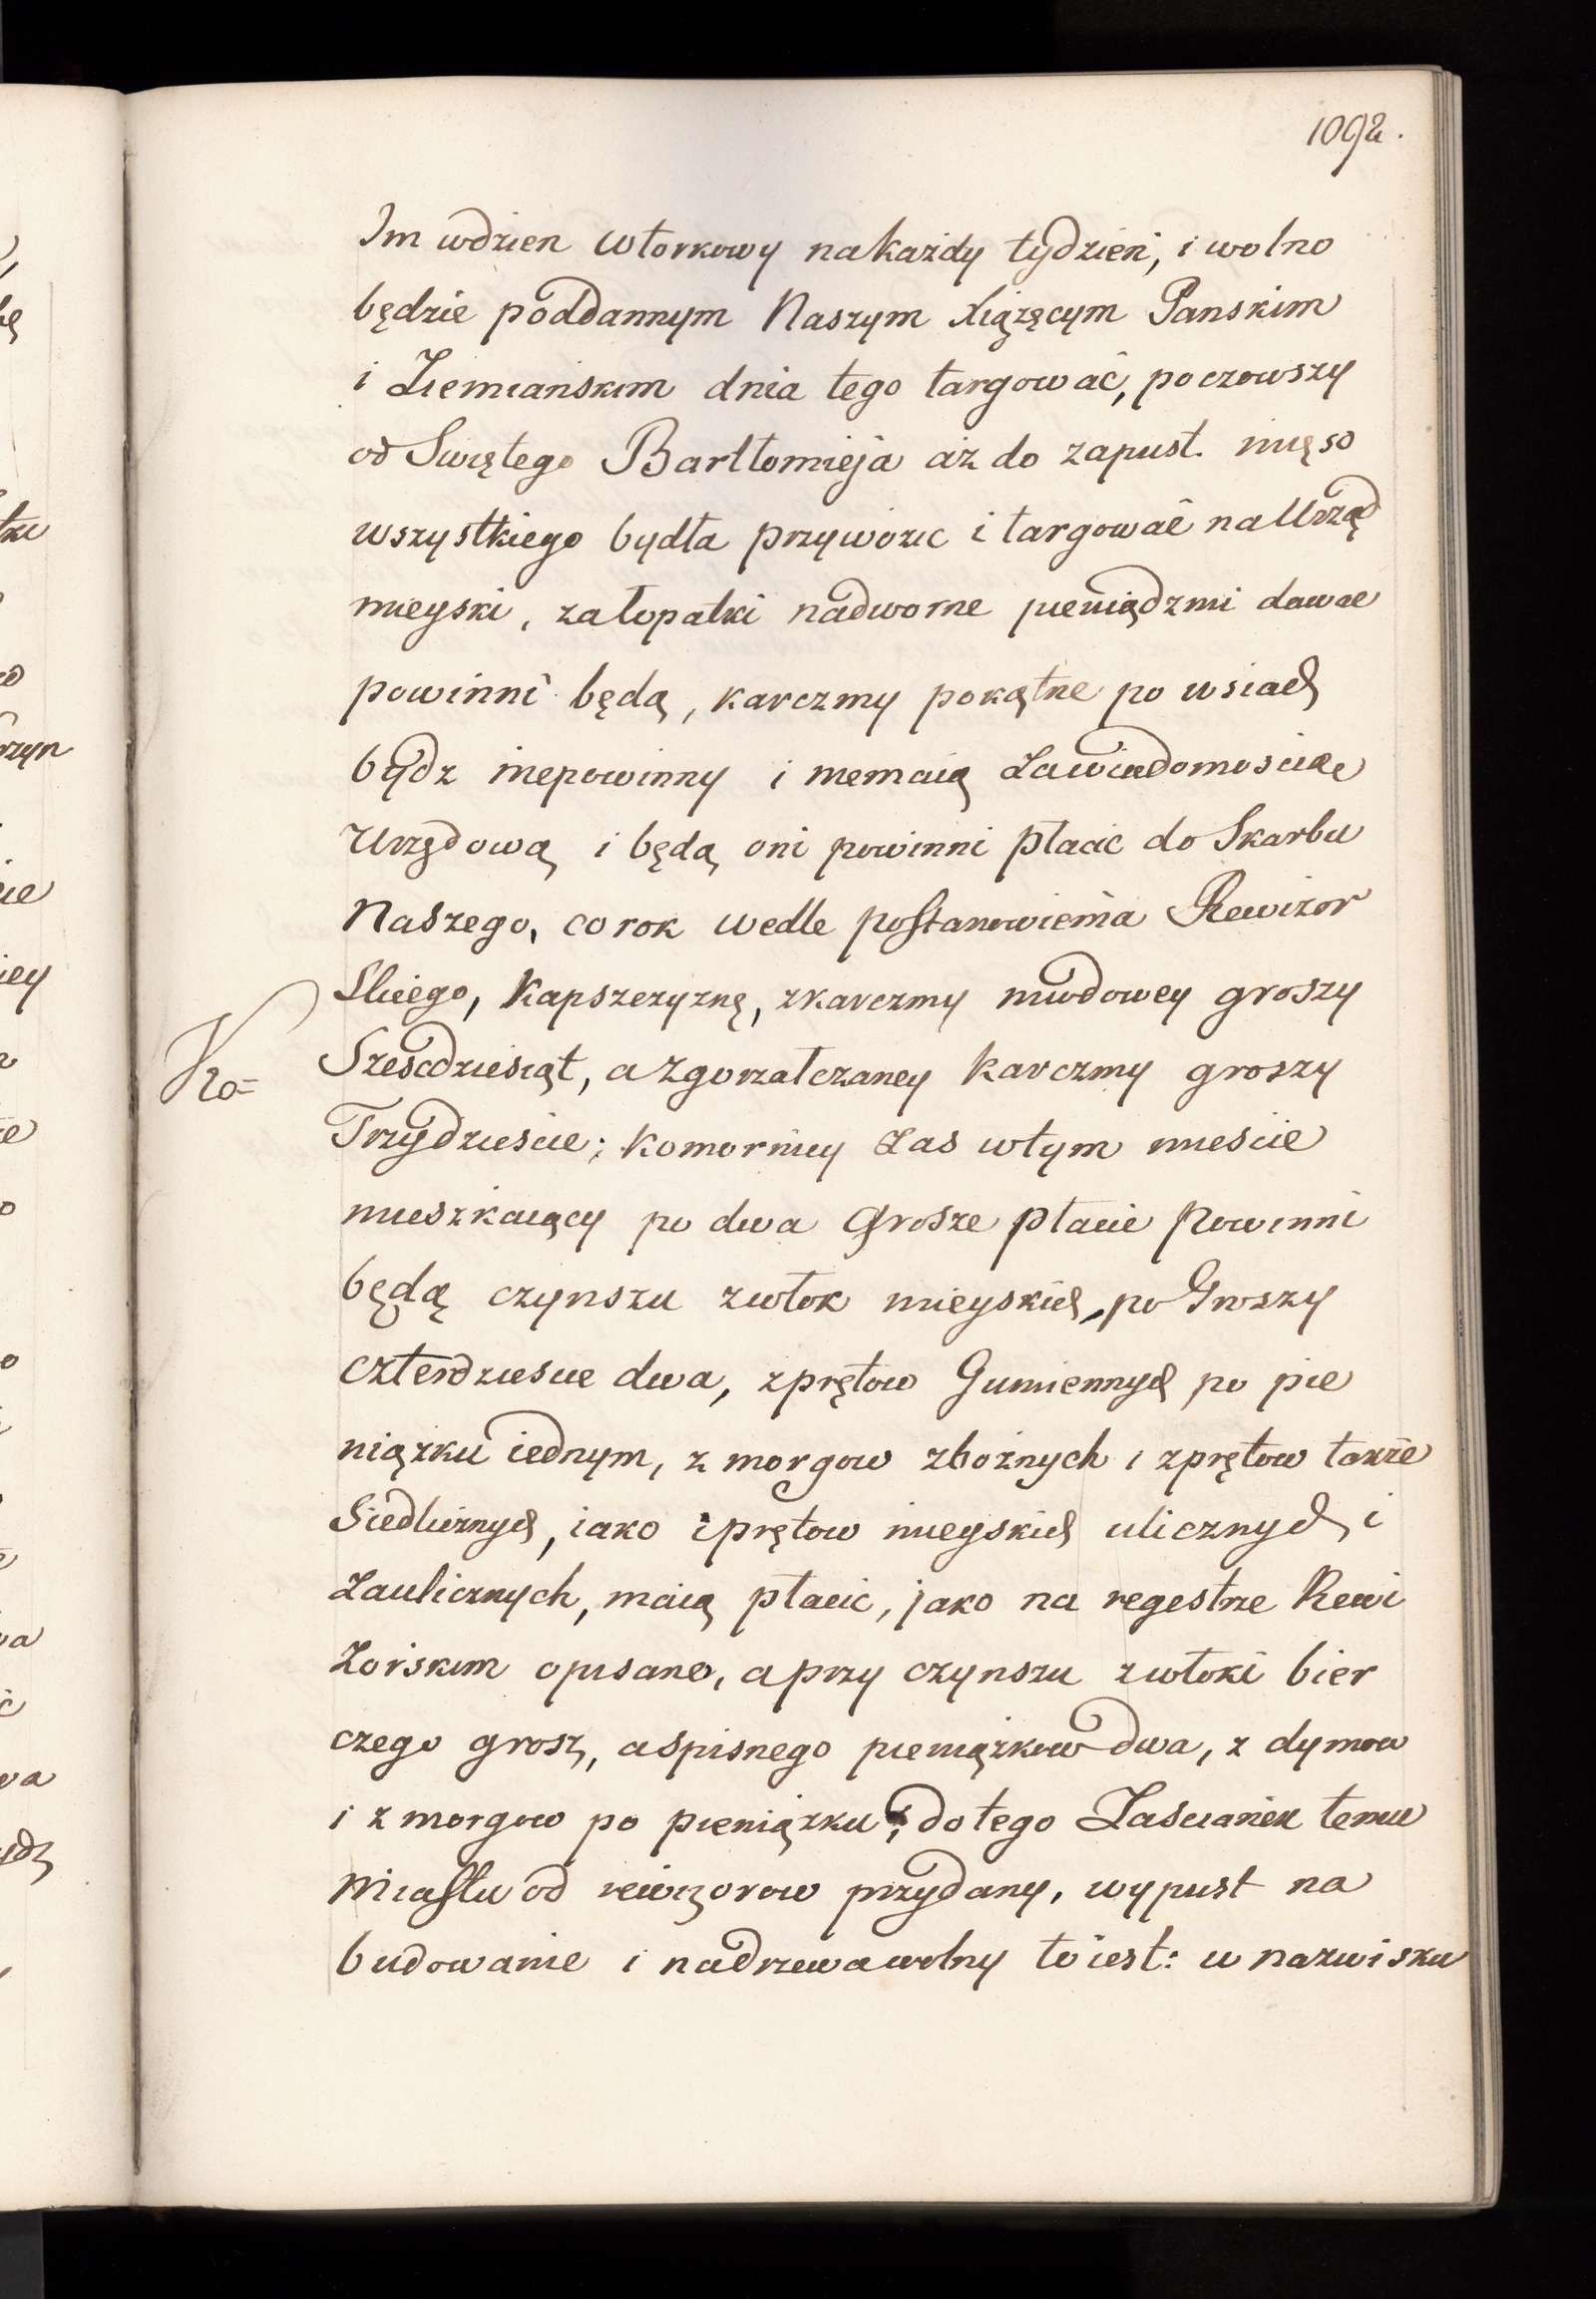 1092.
Im wdzien wtorkowy nakażdy tydzień, i wolno
będzie poddannym Naszym Xiążęcym Panskim
i Ziemianskim dnia tego targować, poczowszy
od Swiętego Bartłomieja aż do zapust. mięso
wszystkiego bydła przywozic i targować naUrząd
mieyski, załopatki nadworne pieniądzmi dawac
powinni będą, karczmy pokątne po wsiach
bydz niepowinny i niemaią Zawiadomoscią
Urzędową i będą oni powinni płacic do Skarbu
Naszego, co rok wedle postanowienia Rewizor
Skiego, Kapszczyznę, zkarczmy miodowey groszy
Szescdziesiąt, a zgorzałczaney karczmy groszy
Trzydziescie; Komornicy Zas wtym miescie
mieszkaiący po dwa Grosze płacic Powinni
będą czynszu zwłok mieyskich, po Groszy
czterdziescie dwa, zprętow Gumiennych po pie
niązku iednym, z morgow zbożnych i zprętow takze
Siedliznych, iako zprętow mieyskich ulicznych, i
Zaulicznych, maią płacic, jako na regestrze Rewi
Zorskim opisano, aprzy czynszu zwłoki bier
czego grosz, aspisnego pieniązkow dwa, z dymow
i z morgow po pieniązku, dotego Zascianek temu
Miastu od rewizorow przydany, wypust na
budowanie i nadrzewawolny toiest: w nazwisku